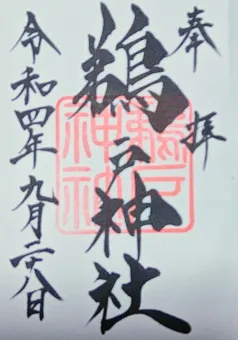 奉拝
鵜戸神社
令和四年九月二十八日
鵜戸神社